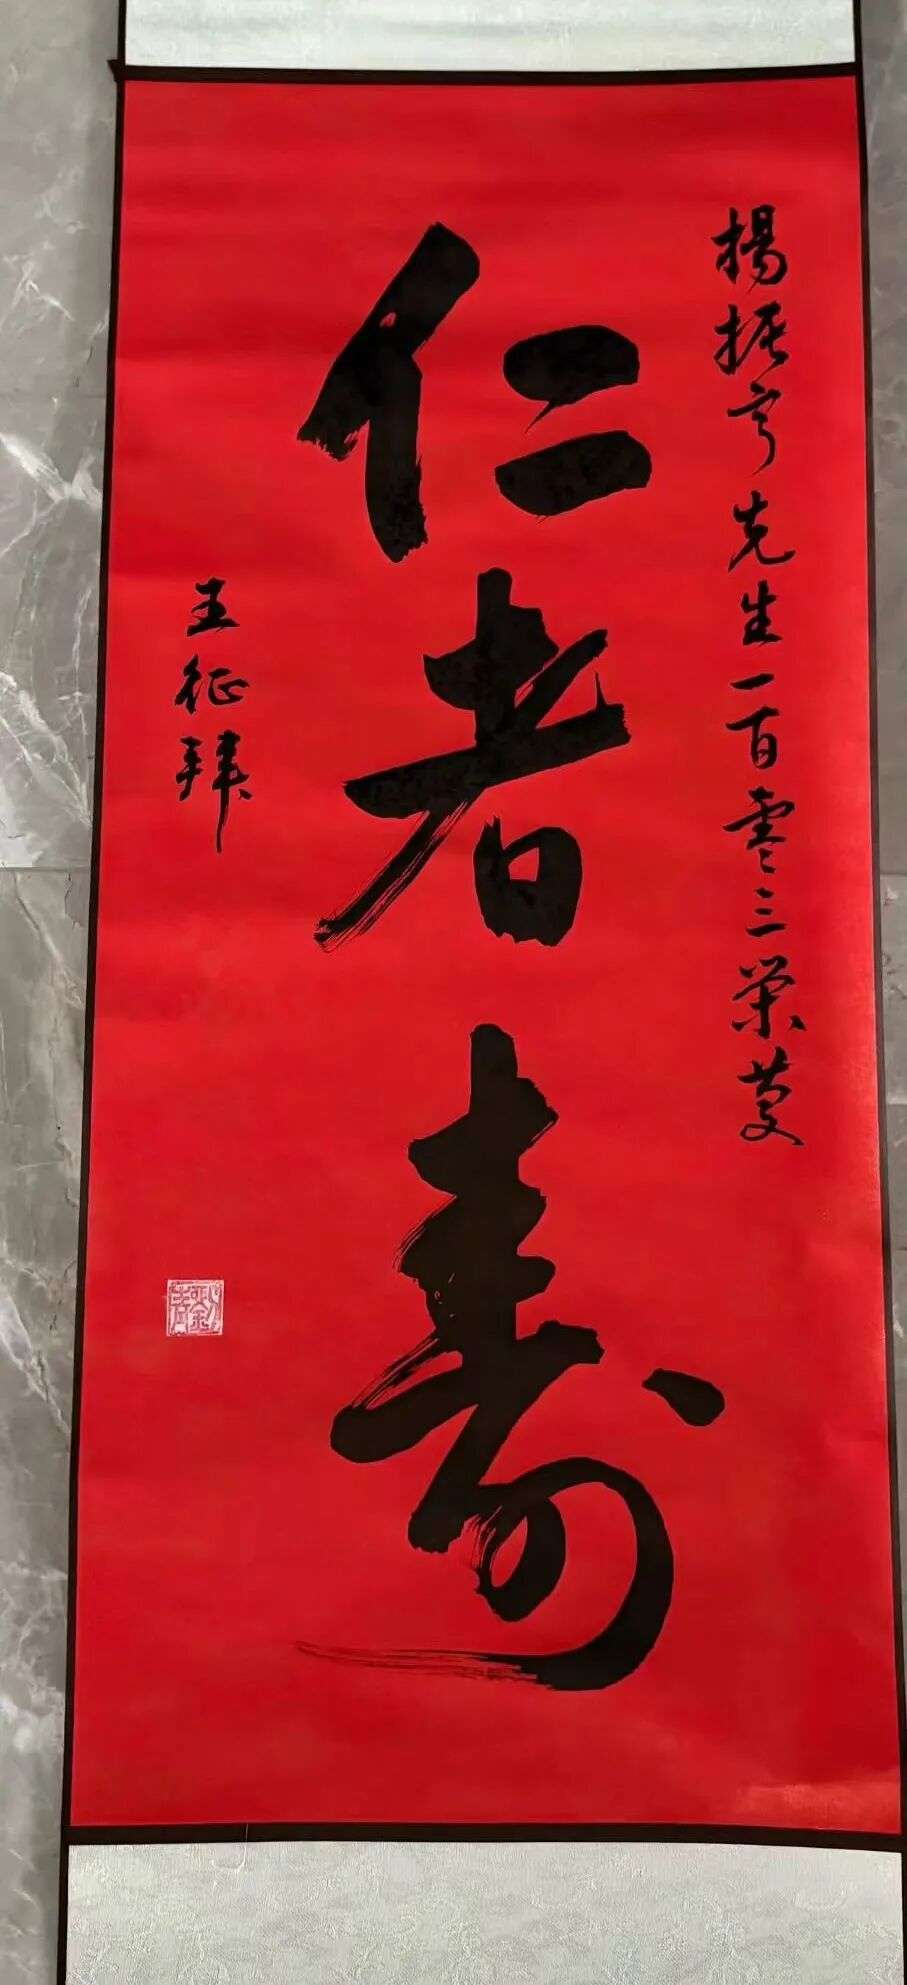 楊振亨先生一百零三荣慶
仁者寿
王征拜